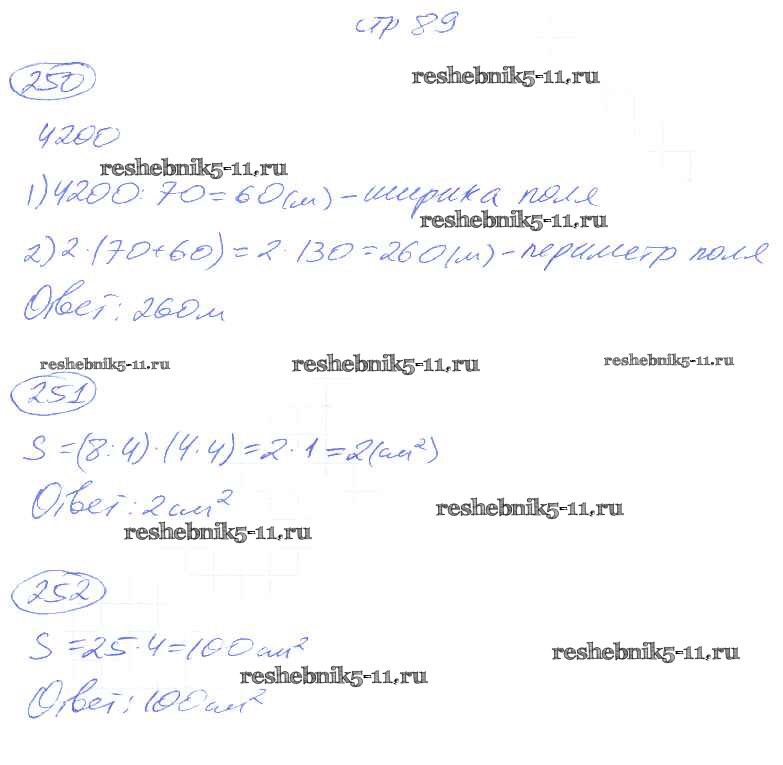 стр 89
250
reshebnik5-11.ru
4200
reshebnik5-11.ru
1) 4200 : 70 = 60 (м) - ширина поля
reshebnik5-11.ru
2) 2 · (70 + 60) = 2 · 130 = 260 (м) - периметр поля
Ответ: 260 м
reshebnik5-11.ru reshebnik5-11.ru reshebnik5-11.ru
251
S = (8 : 4) · (4 : 4) = 2 · 1 = 2 (см²)
Ответ: 2 см²
reshebnik5-11.ru
reshebnik5-11.ru
252
S = 25 · 4 = 100 см²
reshebnik5-11.ru
reshebnik5-11.ru
Ответ: 100 см²